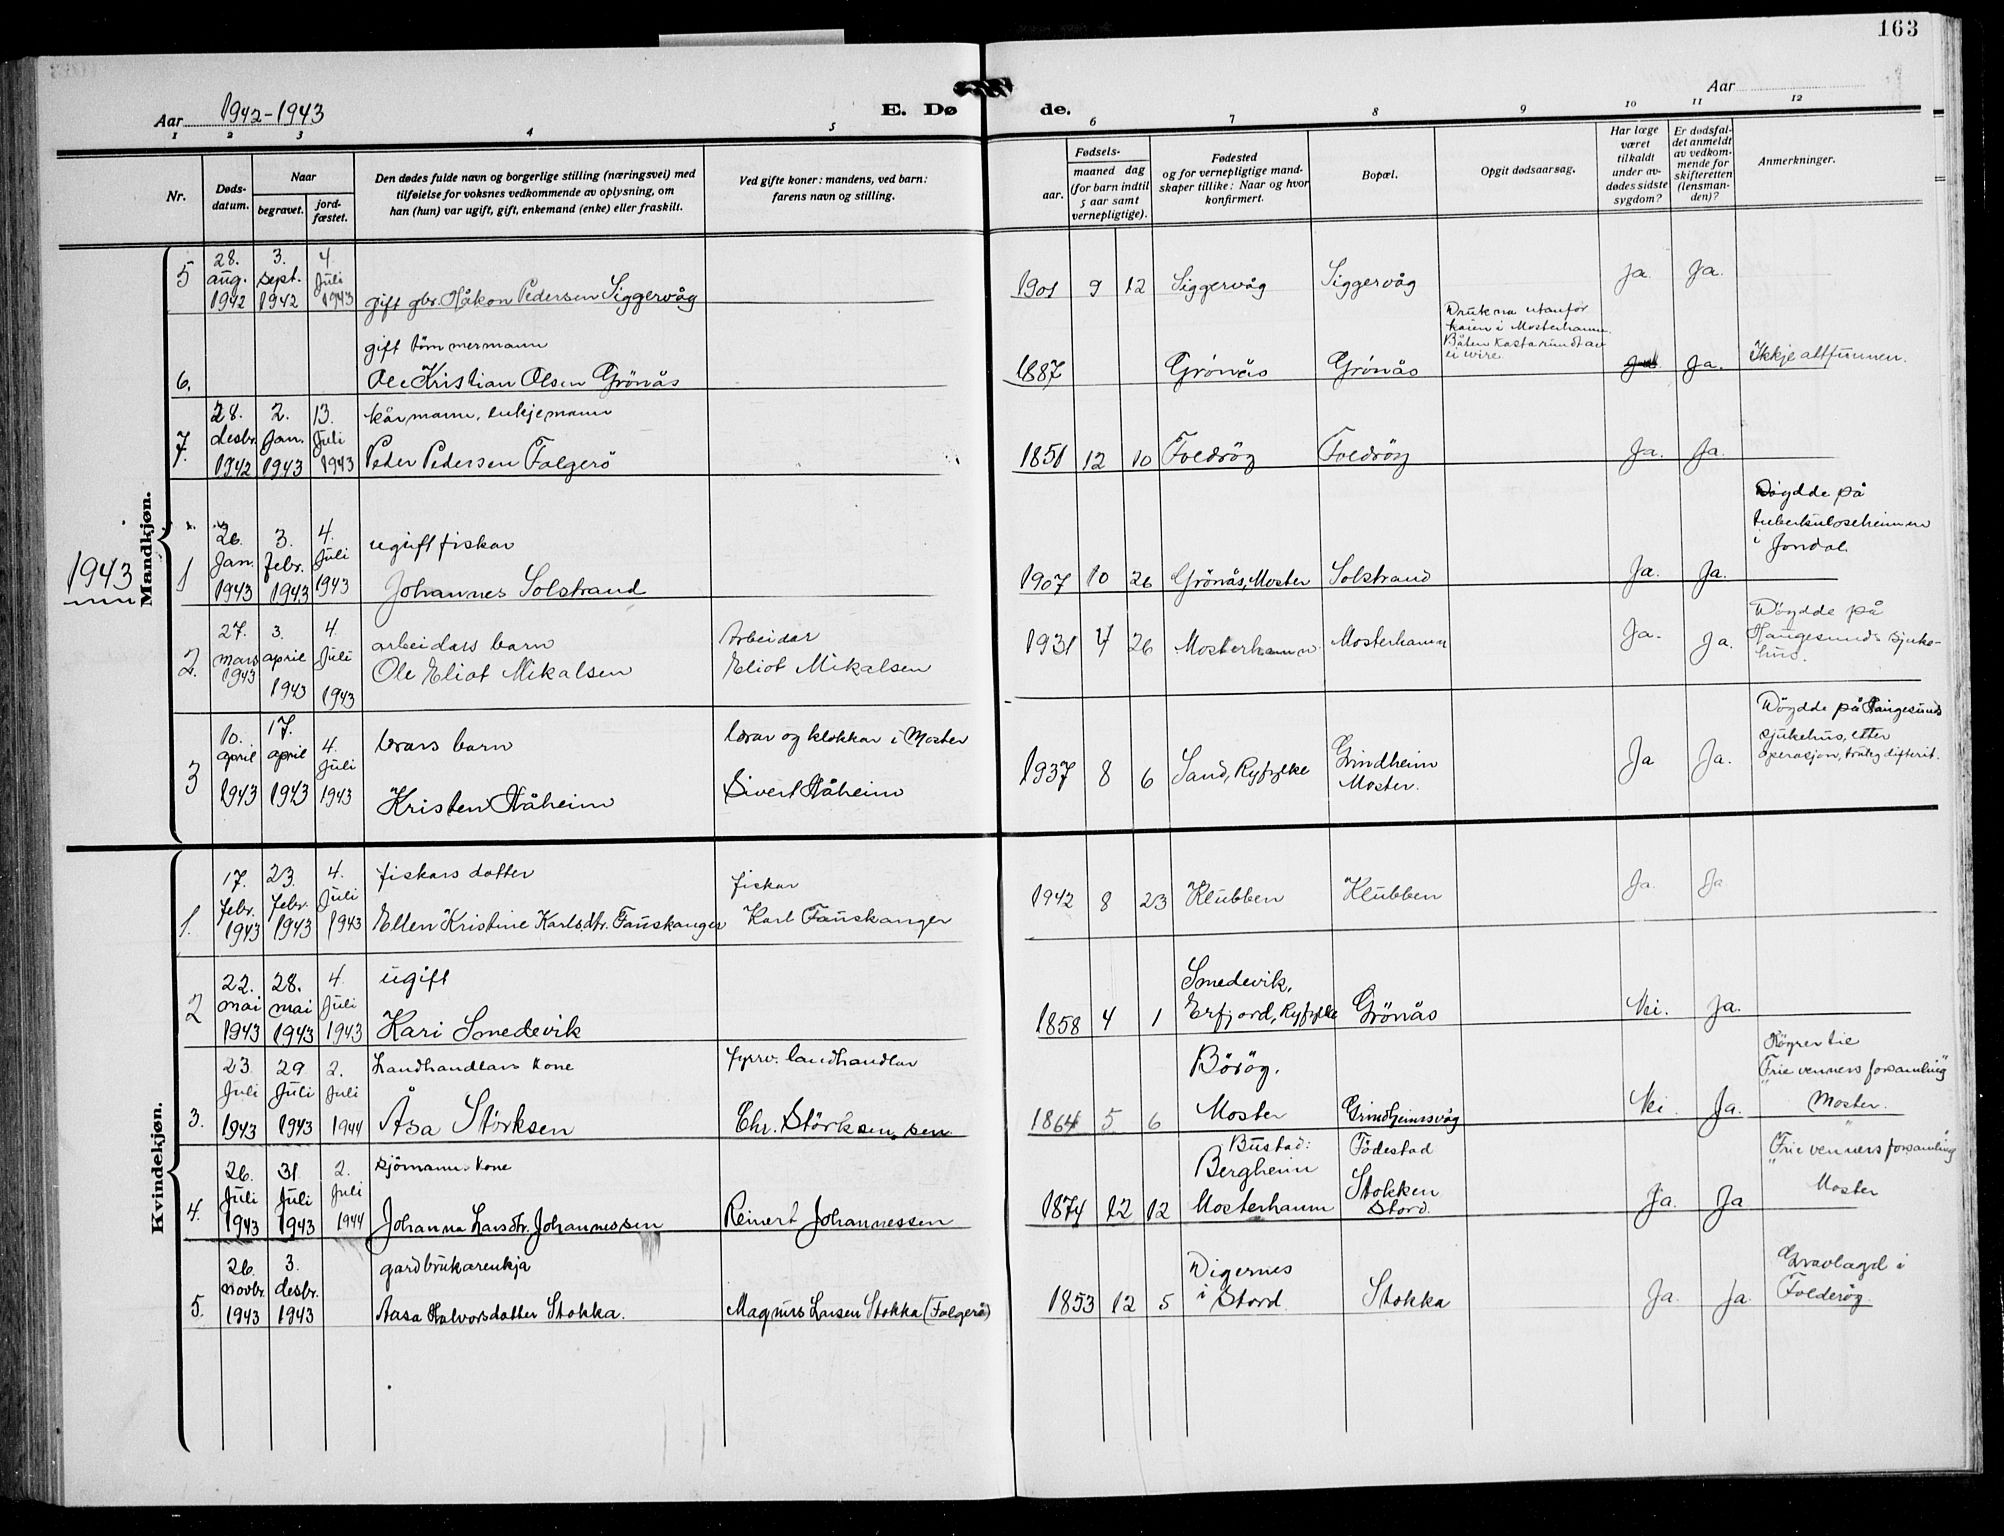 163
Aar 1942-1943
E. Dø
de.
Aar
1 2 3 4 5 6 7 8 9 10 11 12
Nr.
Døds-
datum.
Naar
begravet.
jord-
fæstet.
Den dødes fulde navn og borgerlige stilling (næringsvei) med
tilføielse for voksnes vedkommende av oplysning, om
han (hun) var ugift, gift, enkemand (enke) eller fraskilt.
Ved gifte koner: mandens, ved barn:
farens navn og stilling.
Fødsels-
aar.
maaned dag
(for barn indtil
5 aar samt
vernepligtige).
Fødested
og for vernepligtige mand-
skaper tillike: Naar og hvor
konfirmert.
Bopæl.
Opgit dødsaarsag.
Har læge
været
tilkaldt
under av-
dødes sidste
sygdom?
Er dødsfal-
det anmeldt
av vedkom-
mende for
skifteretten
(lensman-
den)?
Anmerkninger.
Mandkjøn.
5 28. aug. 1942 3. sept. 1942 4. Juli 1943 gift gbr. Håkon Pedersen Siggervåg 1901 9 12 Siggervåg Siggervåg Ja. Ja.
6. gift tømmermann
Ole Kristian Olsen Grönås 1887 Grönås Grönås
Drukna utanfor
kaien i Mosterhamn.
Båten kasta rundt av
ei wire.
Ja. Ikkje attfunnen.
7. 28. desbr. 1942 2. Jan. 1943 13. Juli 1943 kårmann, enkjemann
Peder Pedersen Folgerö 1851 12 10 Foldröy Foldröy Ja. Ja.
1943
1 26. Jan. 1943 3. febr. 1943 4. Juli 1943 ugift fiskar
Johannes Solstrand 1907 10 26 Grönås, Moster Solstrand Ja. Ja.
Döydde på
tuberkuloseheimen
i Jondal.
2. 27. mars 1943 3. april 1943 4. Juli 1943 arbeidars barn
Ole Eliot Mikalsen
Arbeidar
Eliot Mikalsen 1931 4 26 Mosterhamn Mosterhamn Ja. Ja.
Döydde på
Haugesunds sjuke-
hus.
3 10. april 1943 17. april 1943 4. Juli 1943 lærars barn
Kristen Håheim
lærar og klokkar i Moster
Sivert Håheim 1937 8 6 Sand, Ryfylke Grindheim
Moster. Ja Ja.
Döydde på Haugesunds
sjukehus, etter
operasjon, truleg difterit.
Kvindekjøn.
1. 17. febr. 1943 23. febr. 1943 4. Juli 1943 fiskars dotter
Ellen Kristine Karlsdtr. Fauskanger
fiskar
Karl Fauskanger 1942 8 23 Klubben Klubben Ja. Ja
2 22. mai 1943 28. mai 1943 4. Juli 1943 ugift
Kari Smedevik 1858 4 1 Smedevik,
Erfjord, Ryfylke Grönås Nei. Ja.
3. 23. Juli 1943 29 Juli 1943 2. Juli 1944 Landhandlars kone
Åsa Störksen
fyrrv. landhandlar
Chr. Störksen, sen. 1864 5 6 Böröy.
Moster Grindheimsvåg Nei. Ja.
Höyrer til
"Frie venners forsamling"
Moster.
4. 26. Juli 1943 31 Juli 1943 2. Juli 1944 sjömanns kone
Johanna Larsdtr. Johannessen
Reinert Johannessen 1874 12 12 Bustad:
Bergheim
Mosterhamn
Födestad
Stokken
Stord. Ja. Ja
"Frie venners forsamling"
Moster
5. 26. novbr. 1943 3. desbr. 1943 gardbrukarenkja
Aasa Halvorsdotter Stokka.
Magnus Larsen Stokka (Folgerö) 1853 12 5 Digernes
i Stord. Stokka Ja. Ja.
Gravlagd i
Folderöy.